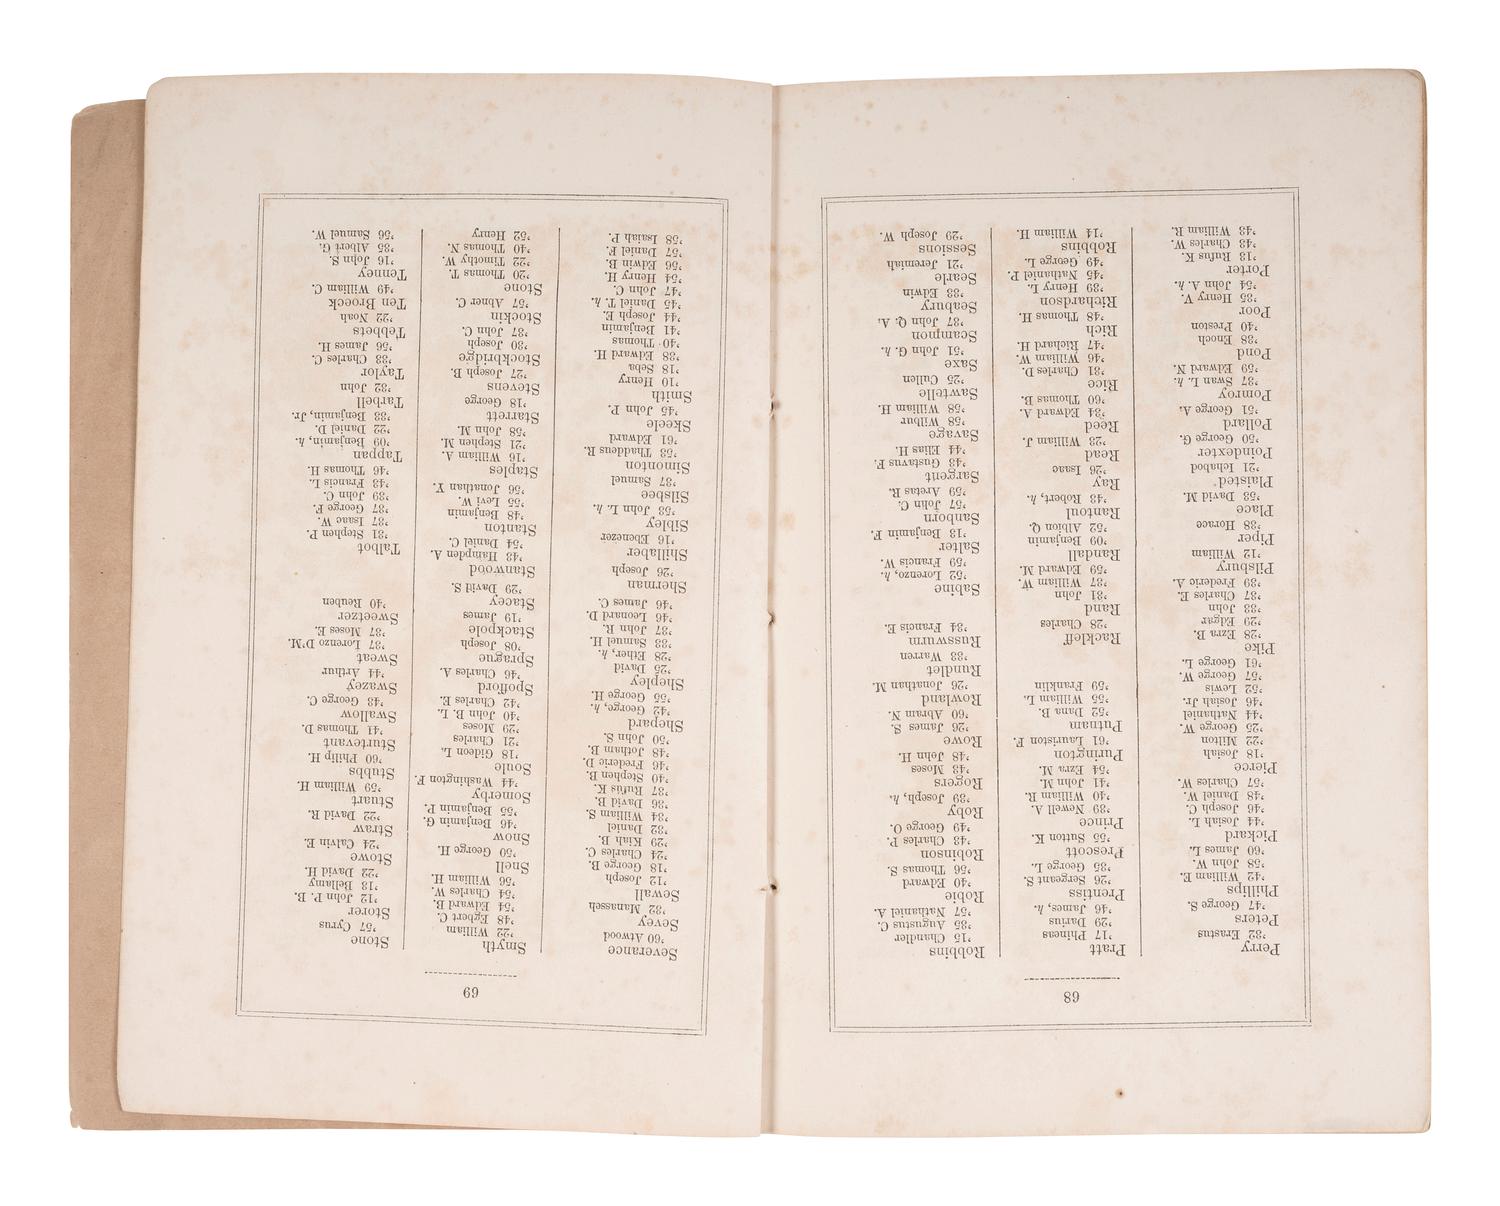 68
Perry
'32 Erastus
Peters
'47 George S.
Phillips
'42 William E.
'58 John W.
'60 James L.
Pickard
'44 Josiah L.
'46 Joseph C.
'48 Daniel W.
'57 Charles W.
Pierce
'18 Josiah
'22 Milton
'25 George W.
'44 Nathaniel
'46 Josiah Jr.
'52 Lewis
'57 George W.
'61 George L.
Pike
'28 Ezra B.
'29 Edgar
'33 John
'37 Charles E.
'39 Frederic A.
Pilsbury
'12 William
Piper
'38 Horace
Place
'53 David M.
Plaisted
'21 Ichabod
Poindexter
'50 George G.
Pollard
'51 George A.
Pomroy
'37 Swan L. h.
'59 Edward N.
Pond
'38 Enoch
'40 Preston
Poor
'35 Henry V.
'54 John A. h.
Porter
'13 Rufus K.
'43 Charles W.
'43 William R.
Pratt
'17 Phineas
'29 Darius
'46 James, h.
Prentiss
'26 Sergeant S.
'35 George L.
Prescott
'55 Sutton K.
Prince
'39 Newell A.
'40 William R.
'41 John M.
'54 Ezra M.
Purington
'61 Lauriston F.
Putnam
'52 Dana B.
'55 William L.
'59 Franklin
Rackleff
'28 Charles
Rand
'31 John
'37 William W.
'59 Edward M.
Randall
'09 Benjamin
'52 Albion Q.
Rantoul
'43 Robert, h.
Ray
'26 Isaac
Read
'23 William J.
Reed
'34 Edward A.
'60 Thomas B.
Rice
'31 Charles D.
'46 William W.
'47 Richard H.
Rich
'48 Thomas H.
Richardson
'39 Henry L.
'45 Nathaniel P.
'49 George L.
Robbins
'14 William H.
Robbins
'15 Chandler
'35 Augustus C.
'57 Nathaniel A.
Robie
'40 Edward
'56 Thomas S.
Robinson
'43 Charles P.
'49 George O.
Roby
'39 Joseph, h.
Rogers
'43 Moses
'48 John H.
Rowe
'26 James S.
'60 Abram N.
Rowland
'26 Jonathan M.
Rundlet
'33 Warren
Russwurm
'34 Francis E.
Sabine
'52 Lorenzo, h.
'59 Francis W.
Salter
'13 Benjamin F.
Sanborn
'57 John C.
'59 Aretas R.
Sargent
'43 Gustavus F.
'44 Elias H.
Savage
'58 Wilbur
'58 William H.
Sawtelle
'25 Cullen
Saxe
'51 John G. h.
Scampon
'37 John Q. A.
Seabury
'33 Edwin
Searle
'21 Jeremiah
Sessions
'29 Joseph W.
69
Severance
'60 Atwood
Sevey
'32 Manasseh
Sewall
'12 Joseph
'18 George B.
'24 Charles C.
'29 Kiah B.
'32 Daniel
'34 William S.
'36 David B.
'37 Rufus K.
'40 Stephen B.
'46 Frederic D.
'48 Jotham B.
'50 John S.
Shepard
'42 George, h.
'55 George H.
Shepley
'25 David
'28 Ether, h.
'33 Samuel H.
'37 John R.
'46 Leonard D.
'46 James C.
Sherman
'26 Joseph
Shillaber
'16 Ebenezer
Sibley
'53 John L. h.
Silsbee
'37 Samuel
Simonton
'53 Thaddeus R.
'61 Edward
Skeele
'45 John P.
Smith
'10 Henry
'18 Seba
'38 Edward H.
'40 Thomas
'41 Benjamin
'44 Joseph E.
'45 Daniel T. h.
'47 John C.
'54 Henry H.
'56 Edwin B.
'57 Daniel F.
'58 Isaiah P.
Smyth
'22 William
'48 Egbert C.
'54 Edward B.
'54 Charles W.
'56 William H.
Snell
'50 George H.
Snow
'46 Benjamin G.
'55 Benjamin P.
Somerby
'44 Washington F.
Soule
'18 Gideon L.
'21 Charles
'29 Moses
'40 John B. L.
'42 Charles E.
Spofford
'46 Charles A.
Sprague
'08 Joseph
Stackpole
'19 James
Stacey
'29 David S.
Stanwood
'43 Hampden A.
'54 Daniel C.
Stanton
'48 Benjamin
'55 Levi W.
'56 Jonathan Y.
Staples
'16 William A.
'21 Stephen M.
'58 John M.
Starrett
'18 George
Stevens
'27 Joseph B.
Stockbridge
'30 Joseph
'37 John C.
Stockin
'57 Abner C.
Stone
'20 Thomas T.
'22 Timothy W.
'40 Thomas N.
'52 Henry
Stone
'57 Cyrus
Storer
'12 John P. B.
'13 Bellamy
'22 David H.
Stowe
'24 Calvin E.
Straw
'22 David R.
Stuart
'59 William H.
Stubbs
'60 Philip H.
Sturtevant
'41 Thomas D.
Swallow
'43 George C.
Swazey
'44 Arthur
Sweat
'37 Lorenzo D'M.
'37 Moses E.
Sweetzer
'40 Reuben
Talbot
'31 Stephen P.
'37 Isaac W.
'37 George F.
'39 John C.
'43 Francis L.
'46 Thomas H.
Tappan
'09 Benjamin, h.
'22 Daniel D.
'33 Benjamin, Jr.
Tarbell
'32 John
Taylor
'33 Charles C.
'56 James H.
Tebbets
'22 Noah
Ten Broeck
'49 William C.
Tenney
'16 John S.
'35 Albert G.
'56 Samuel W.